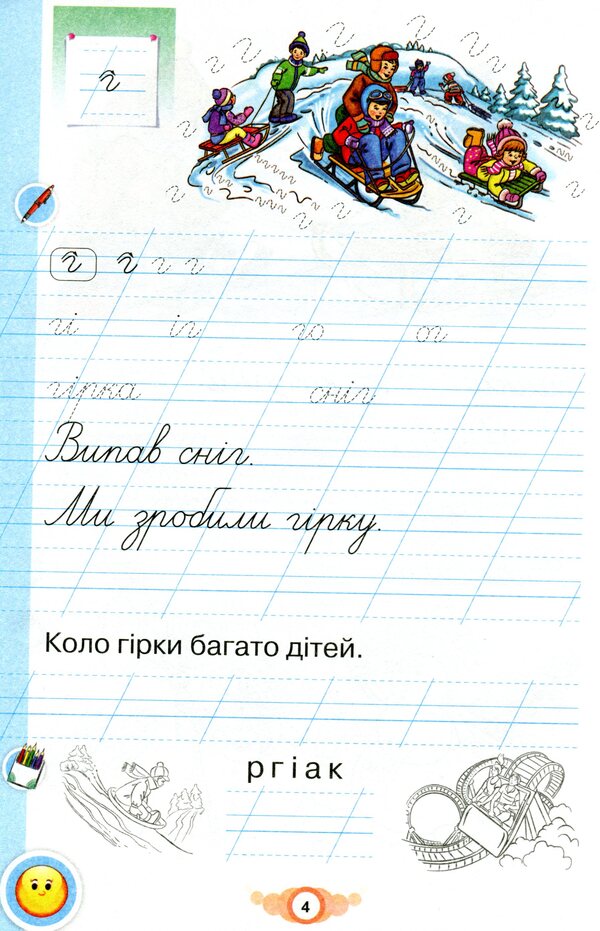 г
г г г г
гі іг го ог
гірка сніг
Випав сніг.
Ми зробили гірку.
Коло гірки багато дітей.
ргіак
4